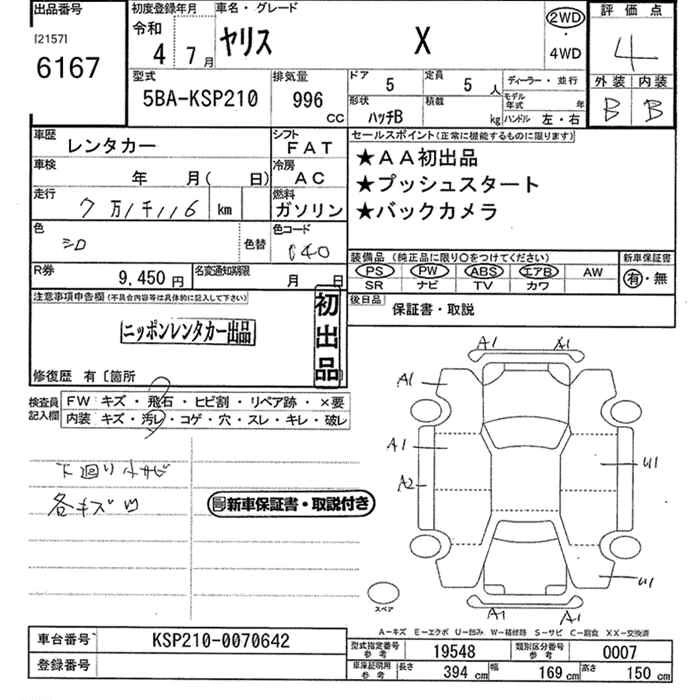 出品番号
[2157]
6167
初度登録年月
令和
4 7月
車名・グレード
ヤリス X
2WD
・
4WD
評価点
4
外装 内装
B B
型式
5BA-KSP210
排気量
996
CC
ドア
5
定員
5 人
形状
ハッチB
積載
kg
ディーラー・並行
モデル
年式 年
ハンドル 左・右
車歴
レンタカー
シフト
FAT
車検
年 月( 日)
冷房
AC
走行
7万1千116 km
燃料
ガソリン
色
シロ
色替
色コード
040
R券
9,450円
名変通知期限
月 日
セールスポイント(正常に機能するものに限ります)
★AA初出品
★プッシュスタート
★バックカメラ
装備品(純正品に限り○をつけてください)
PS PW ABS エアB AW
SR ナビ TV カワ
新車保証書
有・無
後日品
保証書・取説
注意事項申告欄(不具合内容等は具体的に記入して下さい)
ニッポンレンタカー出品
初出品
修復歴 有〔箇所
検査員
記入欄
FW キズ・飛石・ヒビ割・リペア跡・×要
内装 キズ・汚レ・コゲ・穴・スレ・キレ・破レ
下廻り小サビ
各キズ凹
新車保証書・取説付き
A1 A1
A1
A1
A2
U1
U1
A1 A1
スペア
A-キズ E-エクボ U-凹み W-補修跡 S-サビ C-腐食 XX-交換済
車台番号
KSP210-0070642
登録番号
型式指定番号
参考
19548
類別区分番号
参考
0007
車庫証明用
参考
長さ
394 cm
幅
169 cm
高さ
150 cm